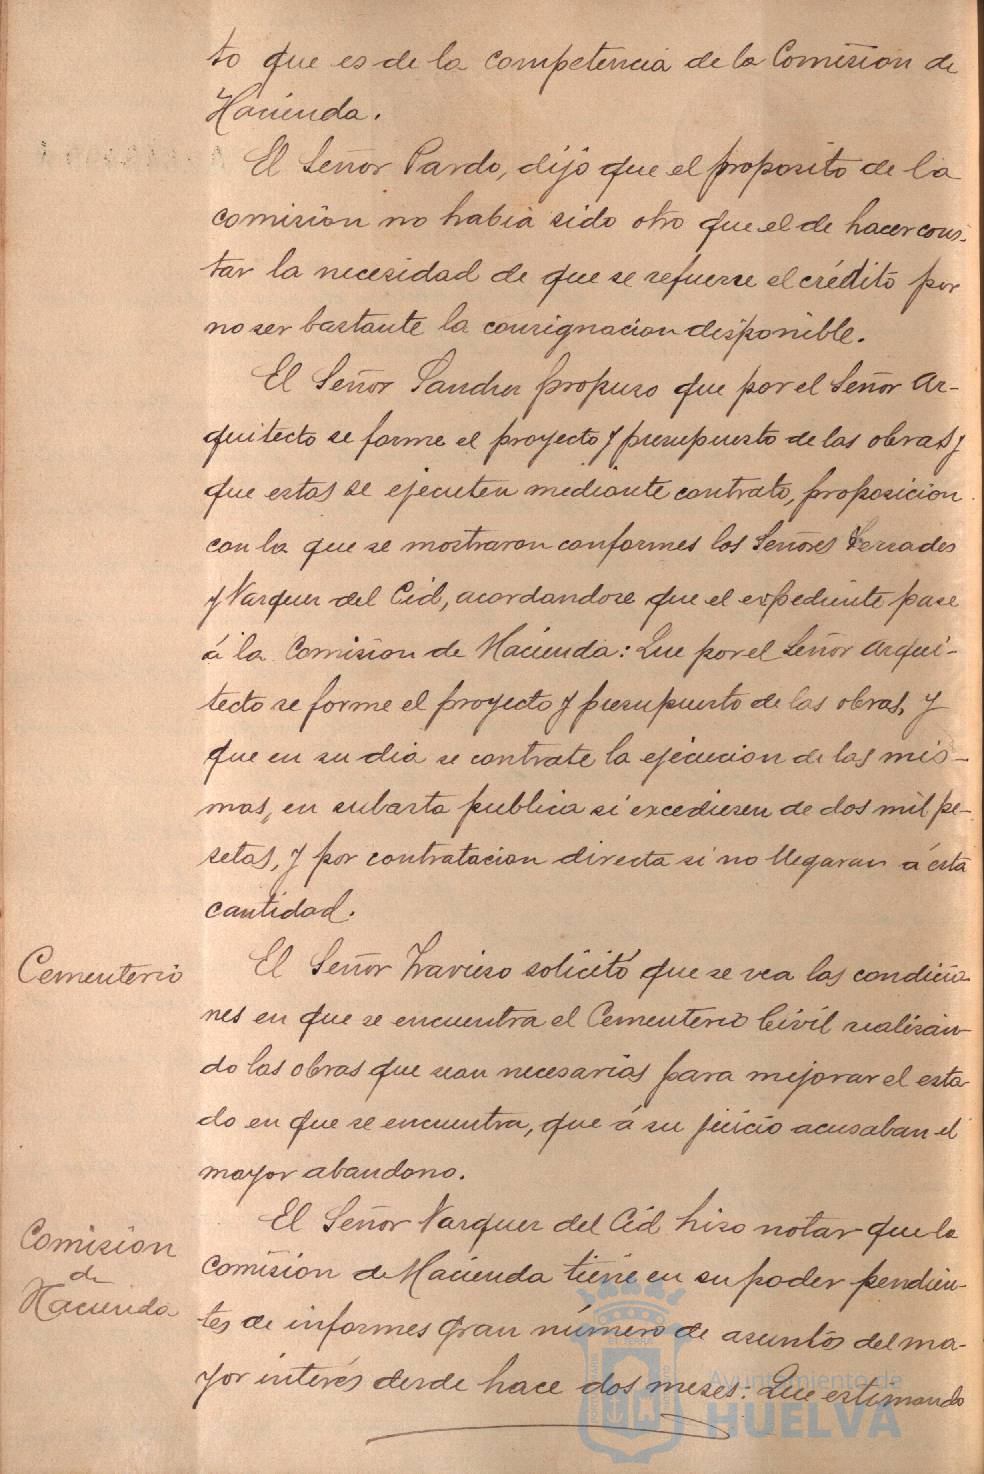 to que es de la competencia de la Comision de
Hacienda.
El Señor Pardo, dijo que el proposito de la
comision no habia sido otro que el de hacer cons-
tar la necesidad de que se refuerse el crédito por
no ser bastante la consignacion disponible.
El Señor Sanchez propuso que por el Señor Ar-
quitecto se forme el proyecto y presupuesto de las obras y
que estas se ejecuten mediante contrato, proposicion
con la que se mostraron conformes los Señores
y Vazquez del Cid, acordandose que el expediente pase
á la Comision de Hacienda: Que por el Señor Arqui-
tecto se forme el proyecto y presupuesto de las obras, y
que en su dia se contrate la ejecucion de las mis-
mas, en subasta publica si excediesen de dos mil pe-
setas, y por contratacion directa si no llegaran á esta
cantidad.
Cementerio
El Señor Travieso solicitó que se vea las condicio-
nes en que se encuentra el Cementerio Civil realizan-
do las obras que sean necesarias para mejorar el esta-
do en que se encuentra, que á su juicio acusaban el
mayor abandono.
Comision
de
Hacienda
El Señor Vazquez del Cid hizo notar que la
comision de Hacienda tiene en su poder pendien-
tes de informes gran número de asuntos del ma-
yor interés desde hace dos meses: Que estimando
Ayuntamiento de
HUELVA